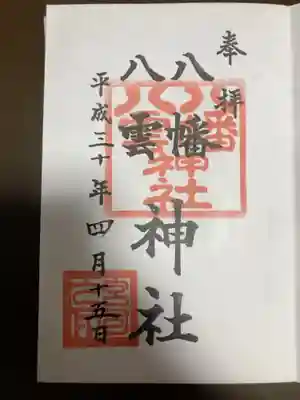 奉拝
八幡
八雲
神社
平成三十年四月十五日
八幡
神社